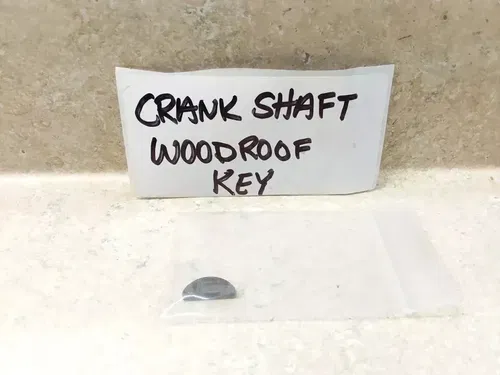 CRANK SHAFT
WOODROOF
KEY